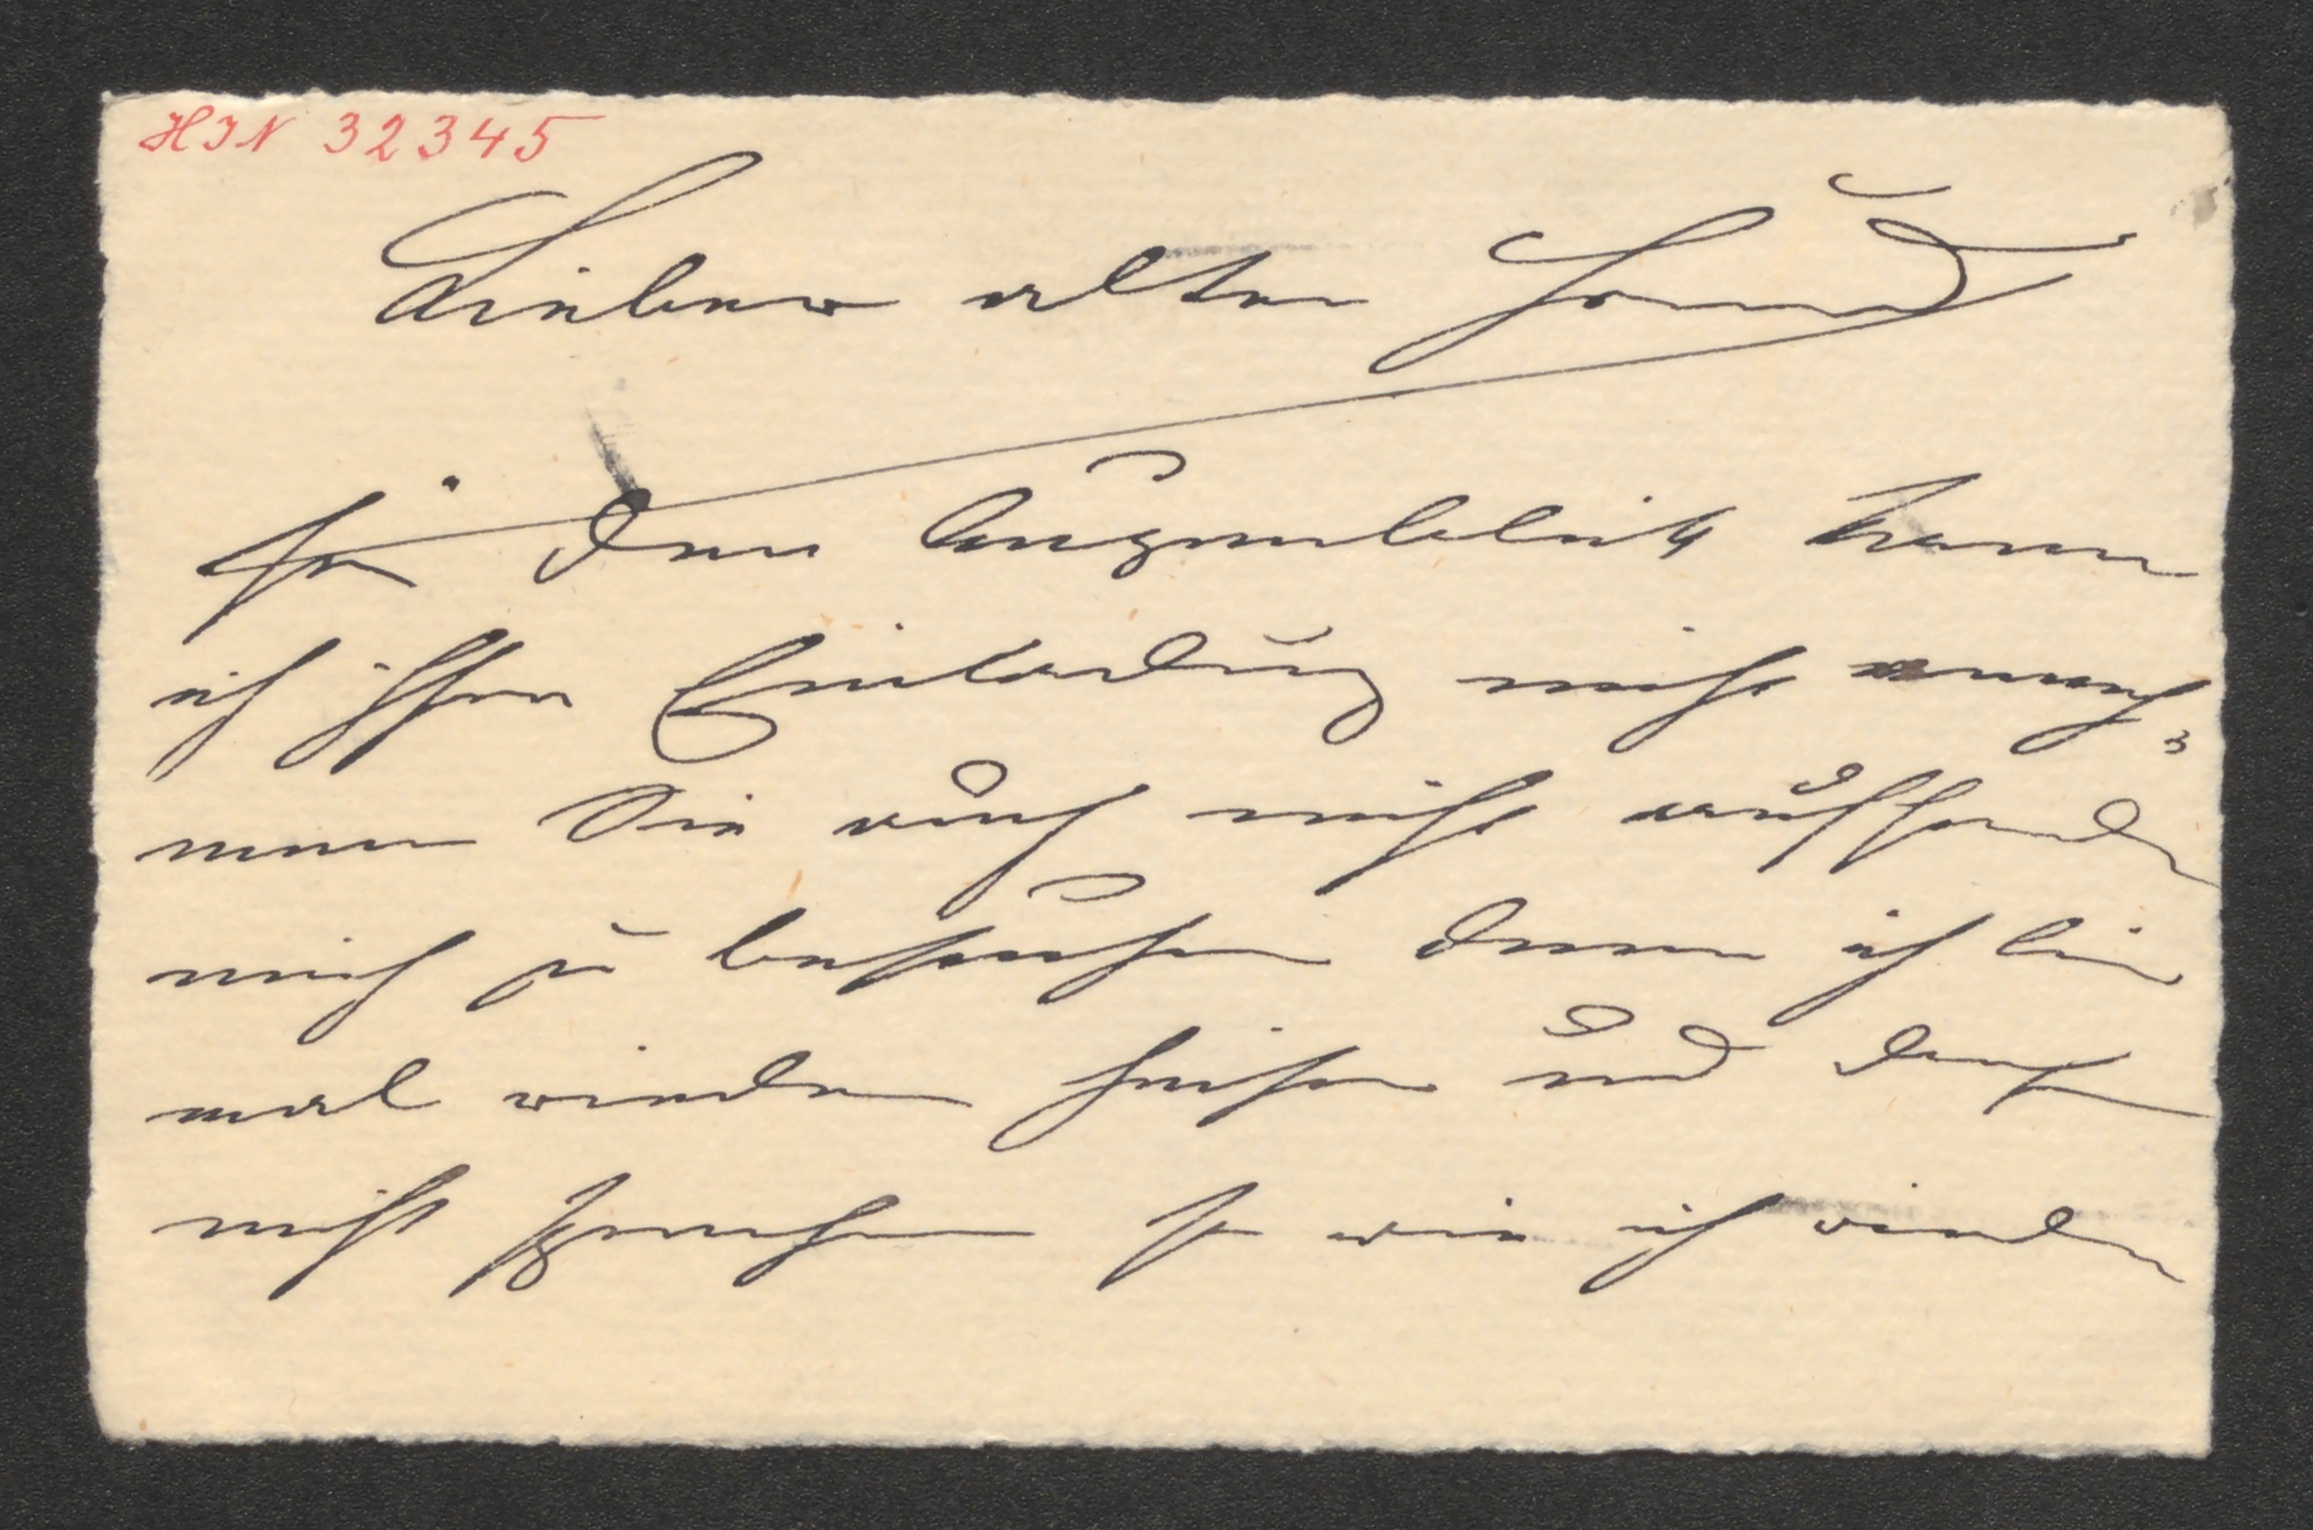 HIN 32345
Lieber alter Freund
Für den Augenblick kann
ich Ihrer Einladung nicht
nen Sie auch nicht auffordern
mich zu besuchen denn ich bin
mal wieder heiser und darf
nicht sprechen so wie ich wieder